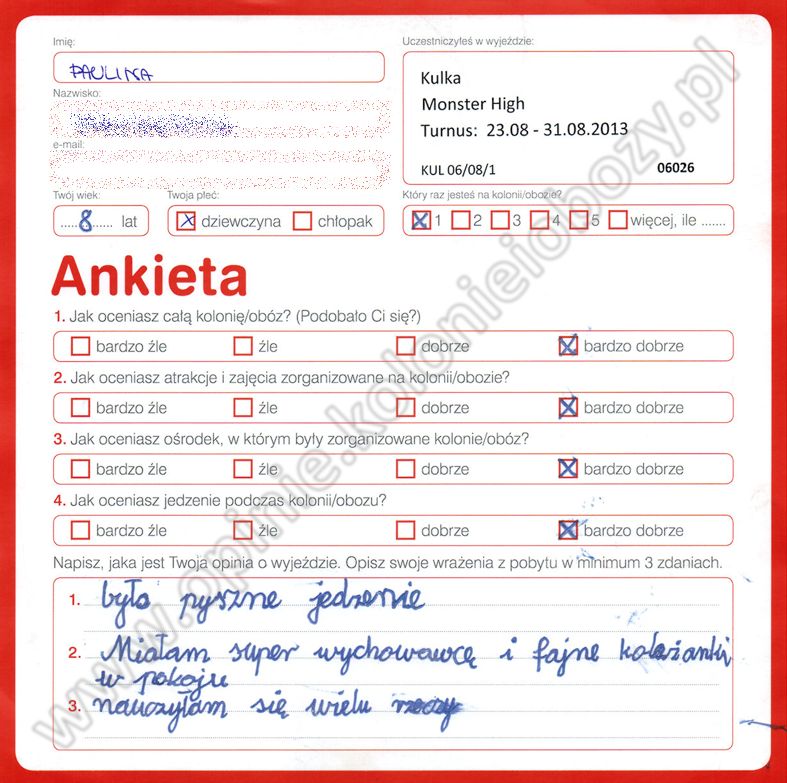 Imię:
PAULINA
Nazwisko:
e-mail:
Twój wiek:
8 lat
Twoja płeć:
dziewczyna chłopak
Uczestniczyłeś w wyjeździe:
Kulka
Monster High
Turnus: 23.08 - 31.08.2013
KUL 06/08/1 06026
Który raz jesteś na kolonii/obozie?
1 2 3 4 5 więcej, ile .......
Ankieta
1. Jak oceniasz całą kolonię/obóz? (Podobało Ci się?)
bardzo źle źle dobrze bardzo dobrze
2. Jak oceniasz atrakcje i zajęcia zorganizowane na kolonii/obozie?
bardzo źle źle dobrze bardzo dobrze
3. Jak oceniasz ośrodek, w którym były zorganizowane kolonie/obóz?
bardzo źle źle dobrze bardzo dobrze
4. Jak oceniasz jedzenie podczas kolonii/obozu?
bardzo źle źle dobrze bardzo dobrze
Napisz, jaka jest Twoja opinia o wyjeździe. Opisz swoje wrażenia z pobytu w minimum 3 zdaniach.
1. było pyszne jedzenie
2. Miałam super wychowawcę i fajne koleżanki
w pokoju
3. nauczyłam się wielu rzeczy
www.opinie.kolonieiobozy.pl